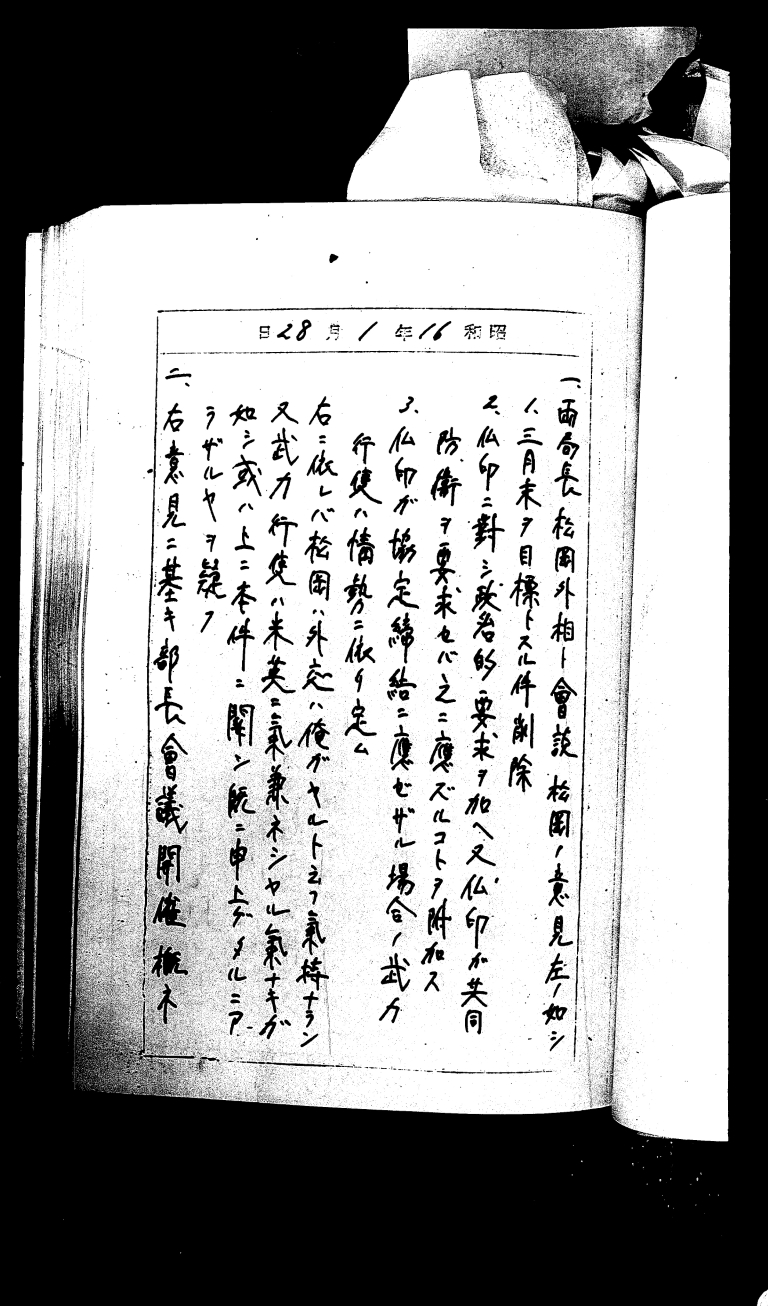 昭和16年1月28日
一、両局長松岡外相ト會談 松岡ノ意見左ノ如シ
1、三月末ヲ目標トスル件削除
2、仏印ニ對シ政治的要求ヲ加ヘ又仏印ガ共同
防衛ヲ要求セバ之ニ應ズルコトヲ附加ス
3、仏印ガ協定締結ニ應ゼザル場合ノ武力
行使ハ情勢ニ依リ定ム
右ニ依レバ松岡ハ外交ハ俺ガヤルト云フ氣持ナラン
又武力行使ハ米英ニ氣兼ネシヤル氣ナキガ
如シ或ハ上ニ本件ニ關シ既ニ申上ゲタルニア
ラザルヤヲ疑フ
二、右意見ニ基キ部長會議開催概ネ